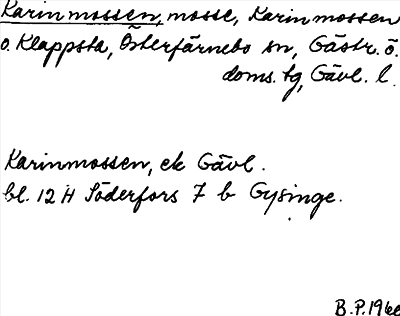 Karinmossen, mosse, Karinmossen
o. Klappsta, Österfärnebo sn, Gästr. ö.
doms. tg, Gävl. l.
Karinmossen, ek Gävl.
bl. 12 H Söderfors 7 b Gysinge.
B.P.196